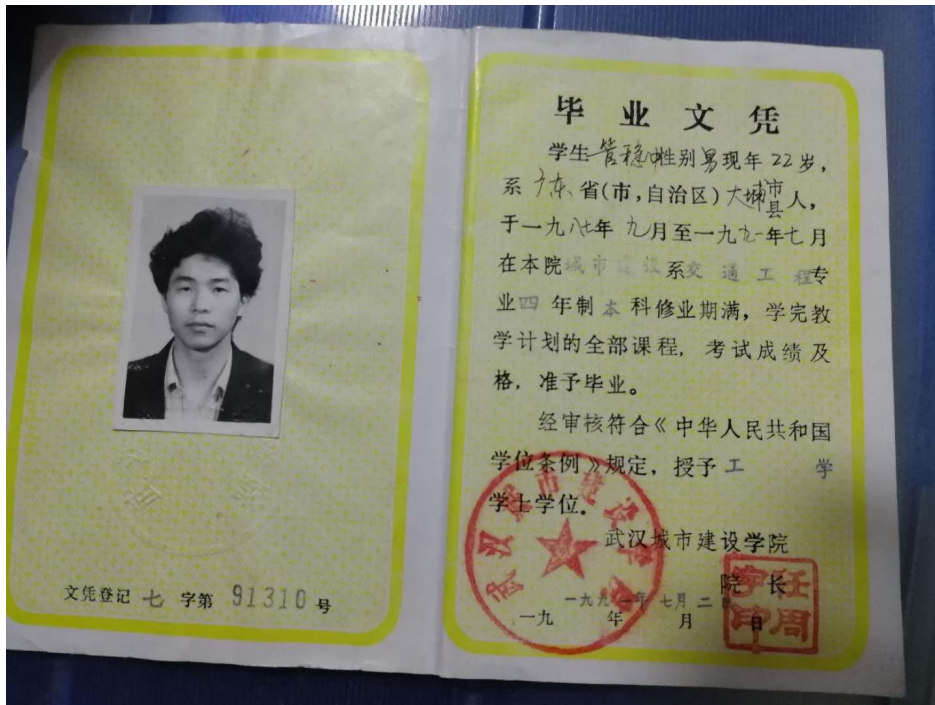 文凭登记 七 字第 91310 号
毕业文凭
学生 管稳冲 性别 男 现年 22 岁，
系 广东 省(市，自治区) 大埔 市县 人，
于一九八七年 九 月至一九九一年 七 月
在本院 城市建设 系 交通工程 专
业 四 年制 本 科修业期满，学完教
学计划的全部课程，考试成绩及
格，准予毕业。
经审核符合《中华人民共和国
学位条例》规定，授予 工 学
学士学位。
武汉城市建设学院
院长
一九九一年七月二日
一九 年 月 日
武汉城市建设学院